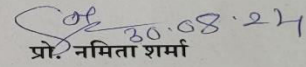 30.08.24
प्रो. नमिता शर्मा